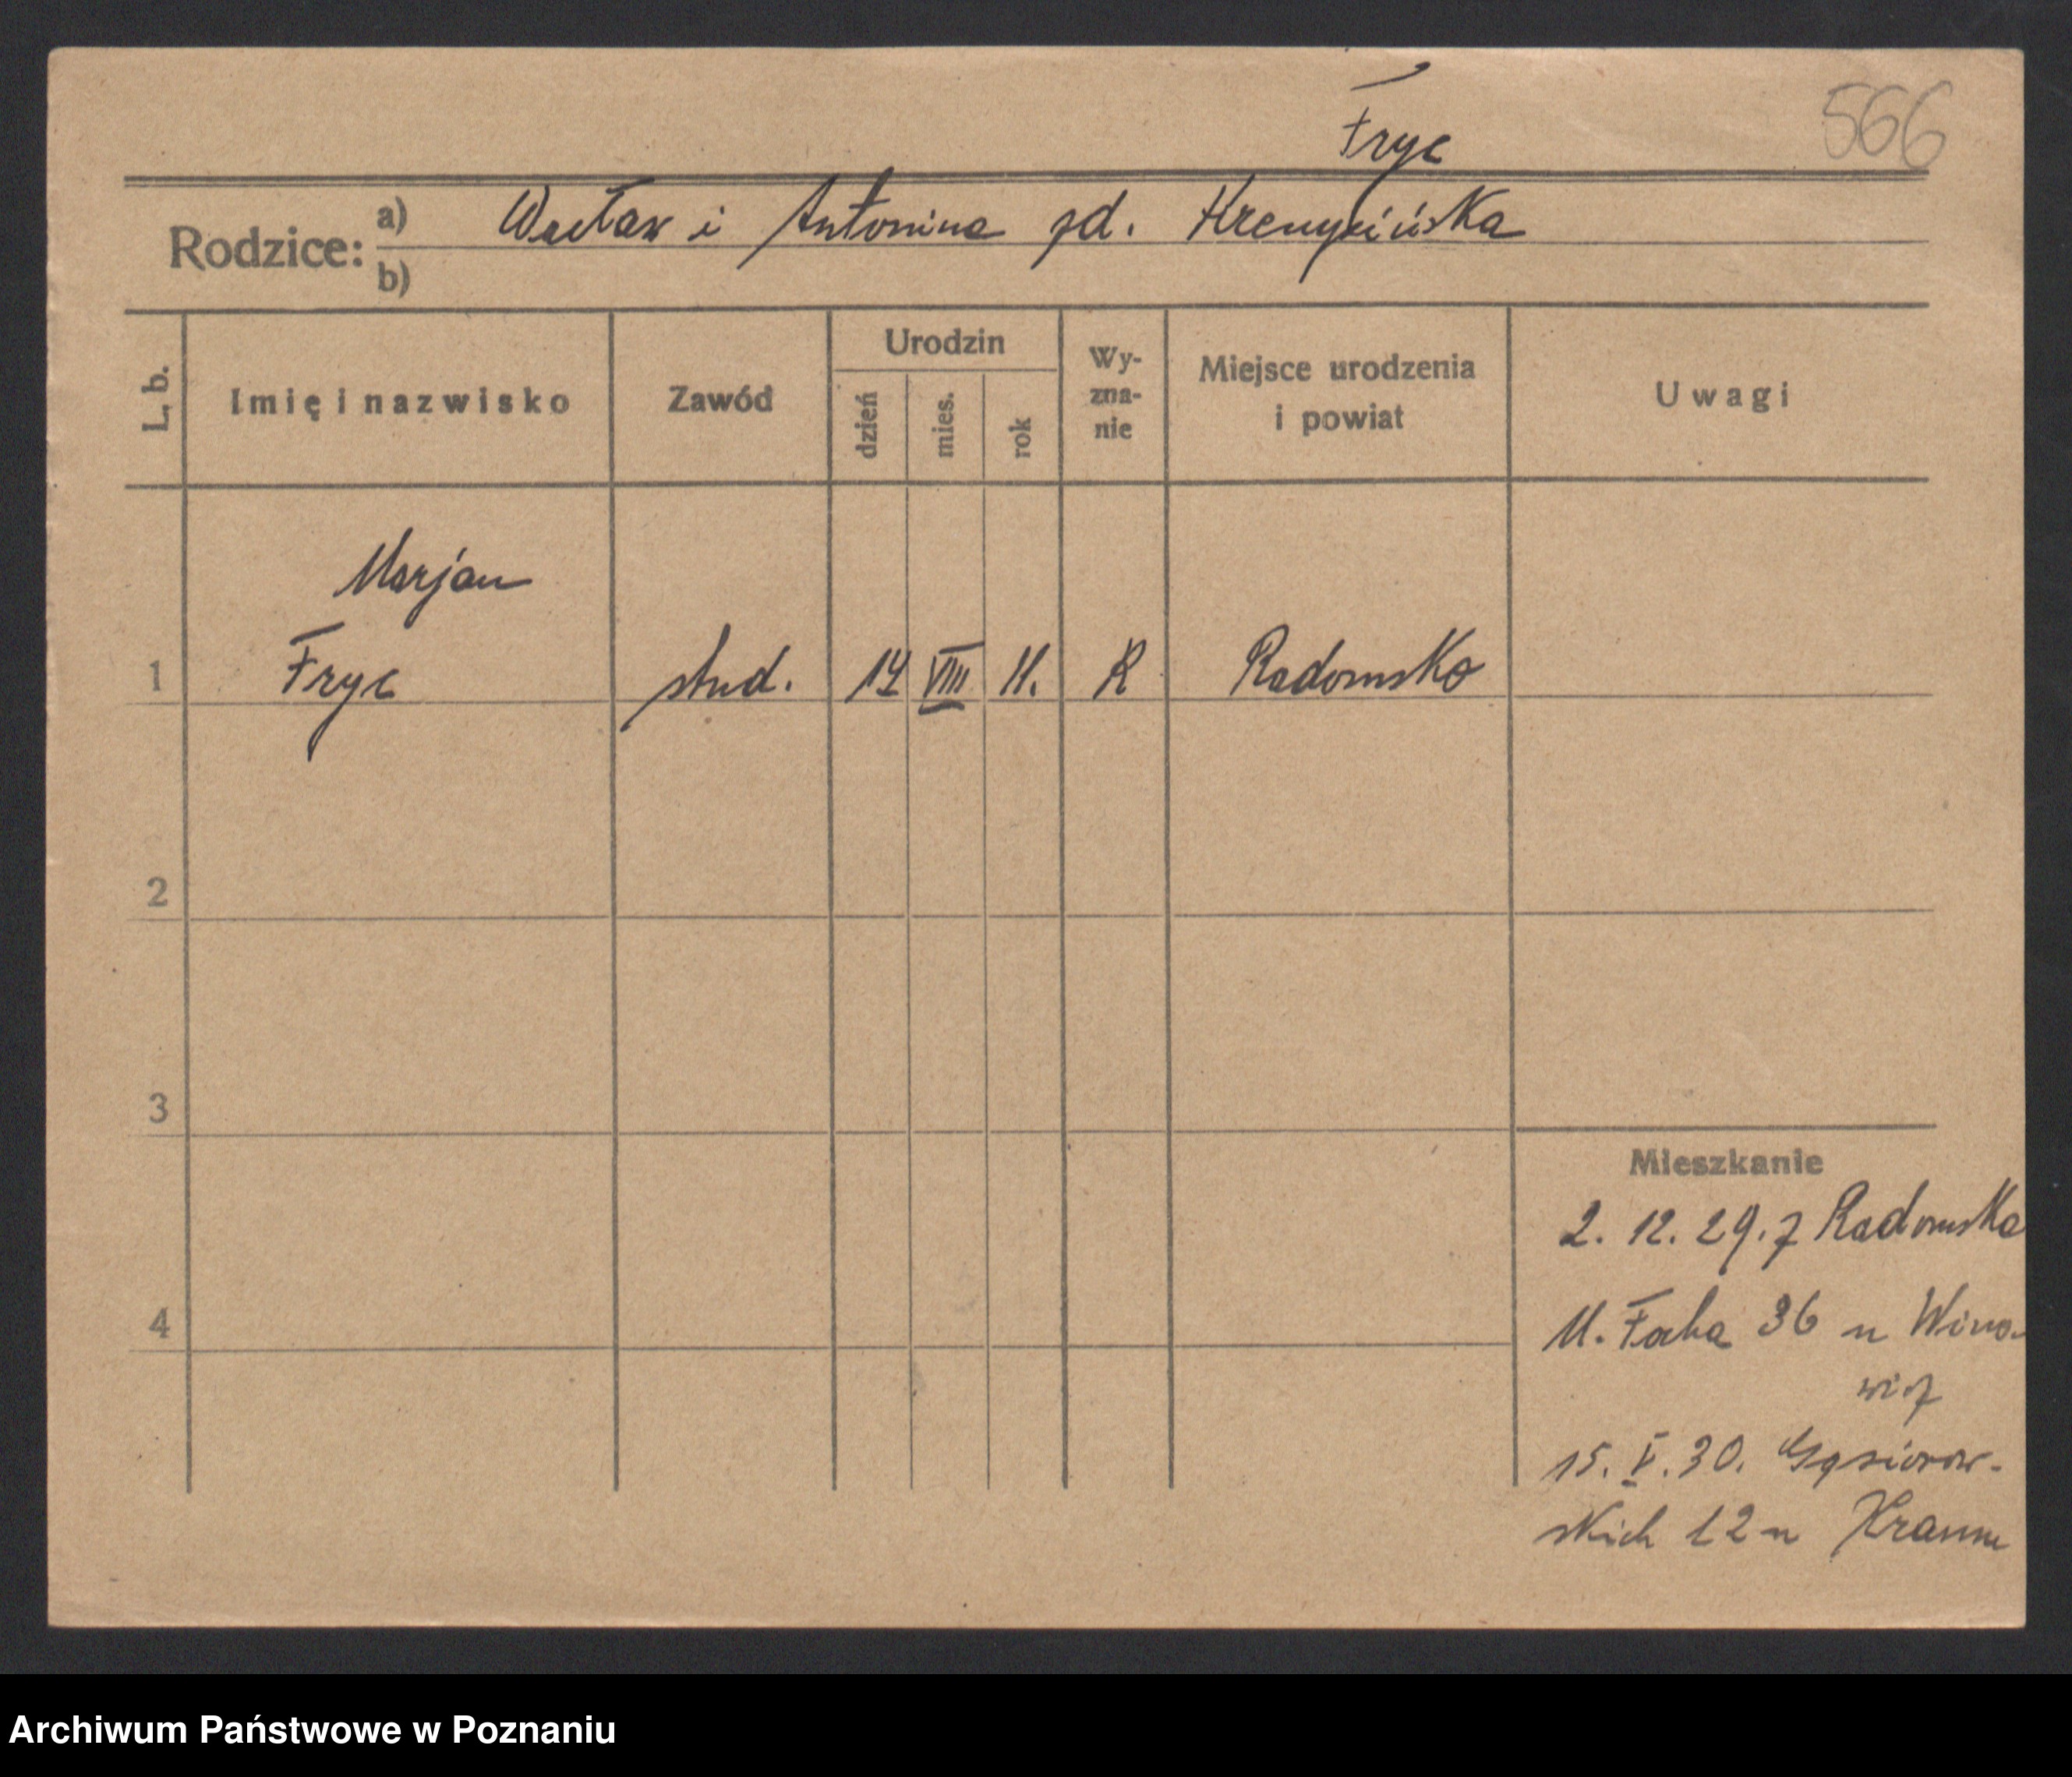 Fryc
566
Rodzice:
a) Wacław i Antonina zd.
b)
L. b.
Imię i nazwisko
Zawód
Urodzin
dzień
mies.
rok
Wy-
zna-
nie
Miejsce urodzenia
i powiat
Uwagi
Marjan
1 Fryc stud. 14 VIII 11. R Radomsko
2
3
4
Mieszkanie
2. 12. 29. z Radomska
Ul. Focha 36 u Wino-
wicz
15. V. 30. Gąsiorow-
skich 12 u
Archiwum Państwowe w Poznaniu